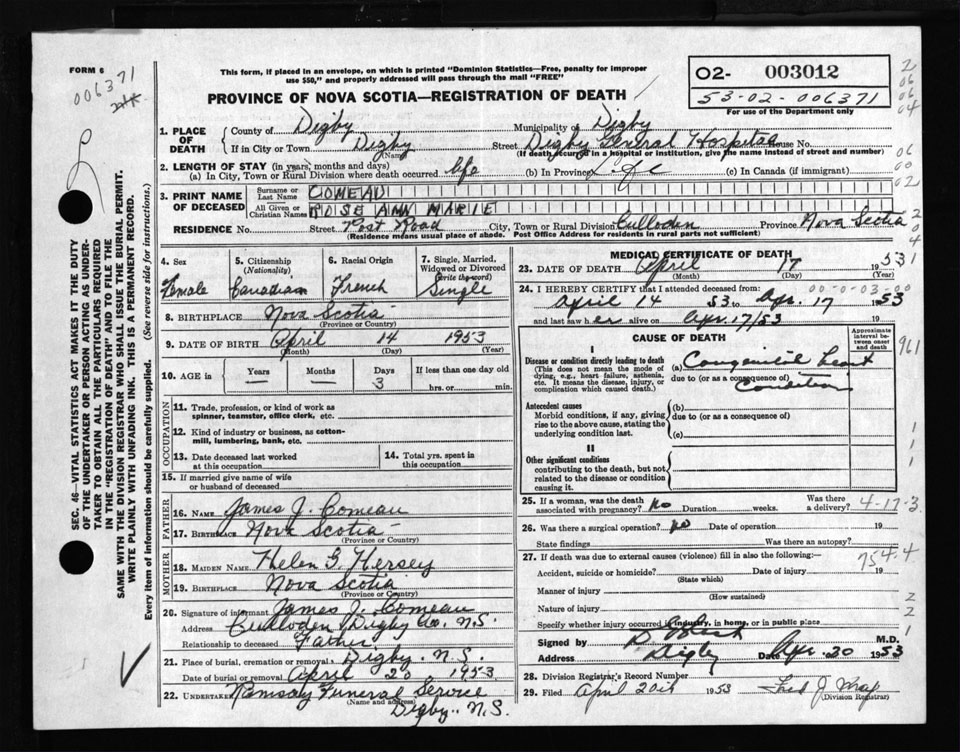 FORM 6
006371
This form, if placed in an envelope, on which is printed "Dominion Statistics—Free, penalty for improper
use $50," and properly addressed will pass through the mail "FREE"
PROVINCE OF NOVA SCOTIA—REGISTRATION OF DEATH
02- 003012
53-02-006371
For use of the Department only
SEC. 46—VITAL STATISTICS ACT MAKES IT THE DUTY
OF THE UNDERTAKER OR PERSON ACTING AS UNDER-
TAKER TO OBTAIN ALL THE PARTICULARS REQUIRED
IN THE "REGISTRATION OF DEATH" AND TO FILE THE
SAME WITH THE DIVISION REGISTRAR WHO SHALL ISSUE THE BURIAL PERMIT.
WRITE PLAINLY WITH UNFADING INK. THIS IS A PERMANENT RECORD.
Every item of information should be carefully supplied. (See reverse side for instructions.)
1. PLACE OF DEATH
County of Digby Municipality of Digby
If in City or Town Digby Street Digby General Hospital House No.
(Name) (If death occurred in a hospital or institution, give the name instead of street and number)
2. LENGTH OF STAY (in years, months and days)
(a) In City, Town or Rural Division where death occurred life (b) In Province life (c) In Canada (if immigrant)
3. PRINT NAME OF DECEASED
Surname or Last Name COMEAU
All Given or Christian Names ROSE ANN MARIE
RESIDENCE No. Street Post Road City, Town or Rural Division Culloden Province Nova Scotia
(Residence means usual place of abode. Post Office Address for residents in rural parts not sufficient)
4. Sex Female
5. Citizenship (Nationality) Canadian
6. Racial Origin French
7. Single, Married, Widowed or Divorced (write the word) Single
8. BIRTHPLACE Nova Scotia
(Province or Country)
9. DATE OF BIRTH April 14 1953
(Month) (Day) (Year)
10. AGE in Years — Months — Days 3 If less than one day old
hrs. or min.
OCCUPATION
11. Trade, profession, or kind of work as
spinner, teamster, office clerk, etc.
12. Kind of industry or business, as cotton-
mill, lumbering, bank, etc.
13. Date deceased last worked
at this occupation
14. Total yrs. spent in
this occupation
15. If married give name of wife
or husband of deceased
FATHER
16. NAME James J. Comeau
17. BIRTHPLACE Nova Scotia
(Province or Country)
MOTHER
18. MAIDEN NAME Helen G. Hersey
19. BIRTHPLACE Nova Scotia
(Province or Country)
20. Signature of informant James J. Comeau
Address Culloden, Digby Co. N.S.
Relationship to deceased Father
21. Place of burial, cremation or removal Digby. N.S.
Date of burial or removal April 20 1953
22. UNDERTAKER Ramsay Funeral Service
(Name and address) Digby. N.S.
MEDICAL CERTIFICATE OF DEATH
23. DATE OF DEATH April 17 1953
(Month) (Day) (Year)
24. I HEREBY CERTIFY that I attended deceased from: 00-0-03-00
April 14 53 to Apr. 17 1953
and last saw her alive on Apr. 17/53
CAUSE OF DEATH
Approximate interval between onset and death
I
Disease or condition directly leading to death
(This does not mean the mode of
dying, e.g., heart failure, asthenia,
etc. It means the disease, injury, or
complication which caused death.)
(a) Congenital heart
due to (or as a consequence of)
condition
Antecedent causes
Morbid conditions, if any, giving
rise to the above cause, stating the
underlying condition last.
(b)
due to (or as a consequence of)
(c)
II
Other significant conditions
contributing to the death, but not
related to the disease or condition
causing it.
961
25. If a woman, was the death
associated with pregnancy? No Duration weeks. Was there a delivery? 4-17-3
26. Was there a surgical operation? No Date of operation 19
State findings Was there an autopsy?
27. If death was due to external causes (violence) fill in also the following:— 754.4
Accident, suicide or homicide? Date of injury 19
(State which)
Manner of injury
(How sustained)
Nature of injury
Specify whether injury occurred in industry, in home, or in public place
Signed by M.D.
Address Digby Date Apr. 20 1953
28. Division Registrar's Record Number
29. Filed April 20th 1953 Fred J.
(Division Registrar)